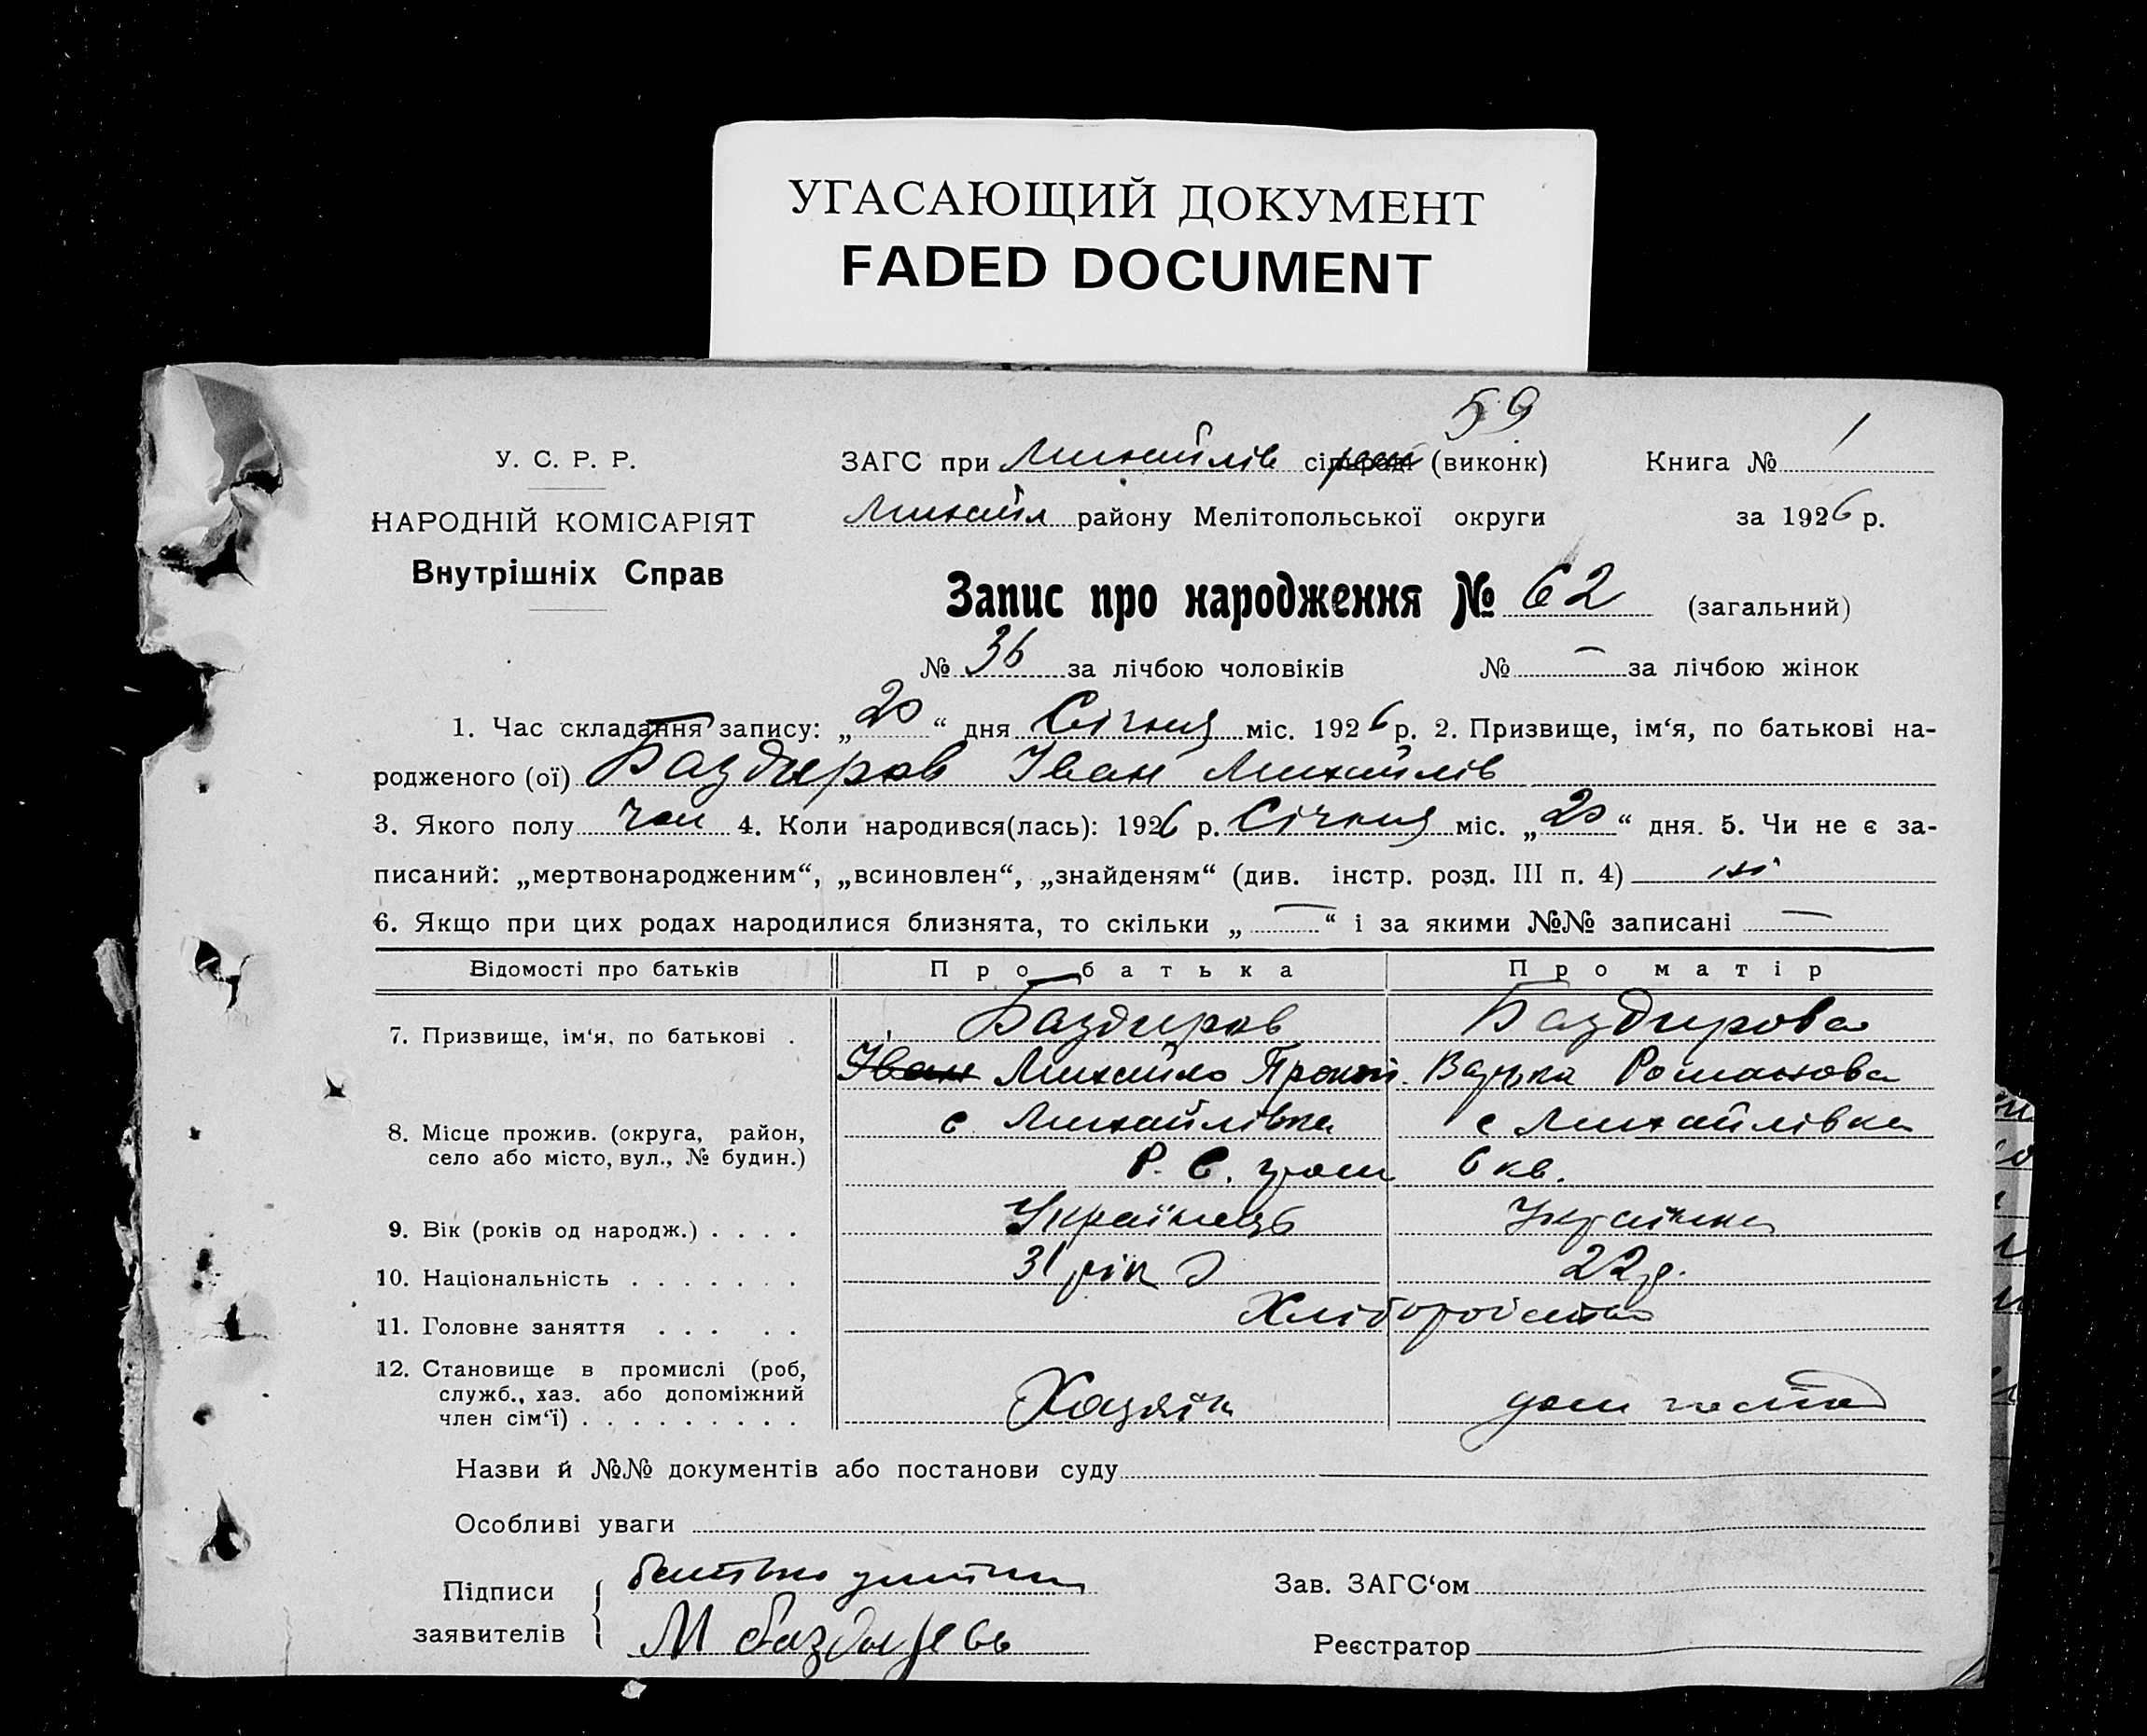 УГАСАЮЩИЙ ДОКУМЕНТ
FADED DOCUMENT
59
У. С. Р. Р.
ЗАГС при Михайлів (виконк)
Книга № 1
НАРОДНІЙ КОМІСАРІЯТ
Михайл району Мелітопольської округи
за 1926 р.
Внутрішніх Справ
Запис про народження № 62 (загальний)
№ 36 за лічбою чоловіків № — за лічбою жінок
1. Час складання запису: „20“ дня Січня міс. 1926 р. 2. Призвище, ім‘я, по батькові на-
родженого (ої) Баздиров Іван Михайлів
3. Якого полу чол 4. Коли народився(лась): 1926 р. Січня міс. „20“ дня. 5. Чи не є за-
писаний: „мертвонародженим“, „всиновлен“, „знайденям“ (див. інстр. розд. III п. 4) ні
6. Якщо при цих родах народилися близнята, то скільки „—“ і за якими №№ записані —
Відомості про батьків Про батька Про матір
7. Призвище, ім‘я, по батькові . Баздиров Баздирова
Іван Михайло Прокоп. Романова
8. Місце прожив. (округа, район, с Михайлівка с Михайлівка
село або місто, вул., № будин.) Р. С. 6 кв.
9. Вік (років од народж.) . . . . Українець Українка
10. Національність . . . . . . . 31 рік 22 р.
11. Головне заняття . . . . . Хліборобство
12. Становище в промислі (роб,
служб., хаз. або допоміжний Хазяїн дом господ
член сім‘ї) . . . . . . . . .
Назви й №№ документів або постанови суду
Особливі уваги
Підписи батько дитини Зав. ЗАГС‘ом
заявителів М Баздыревъ Реєстратор